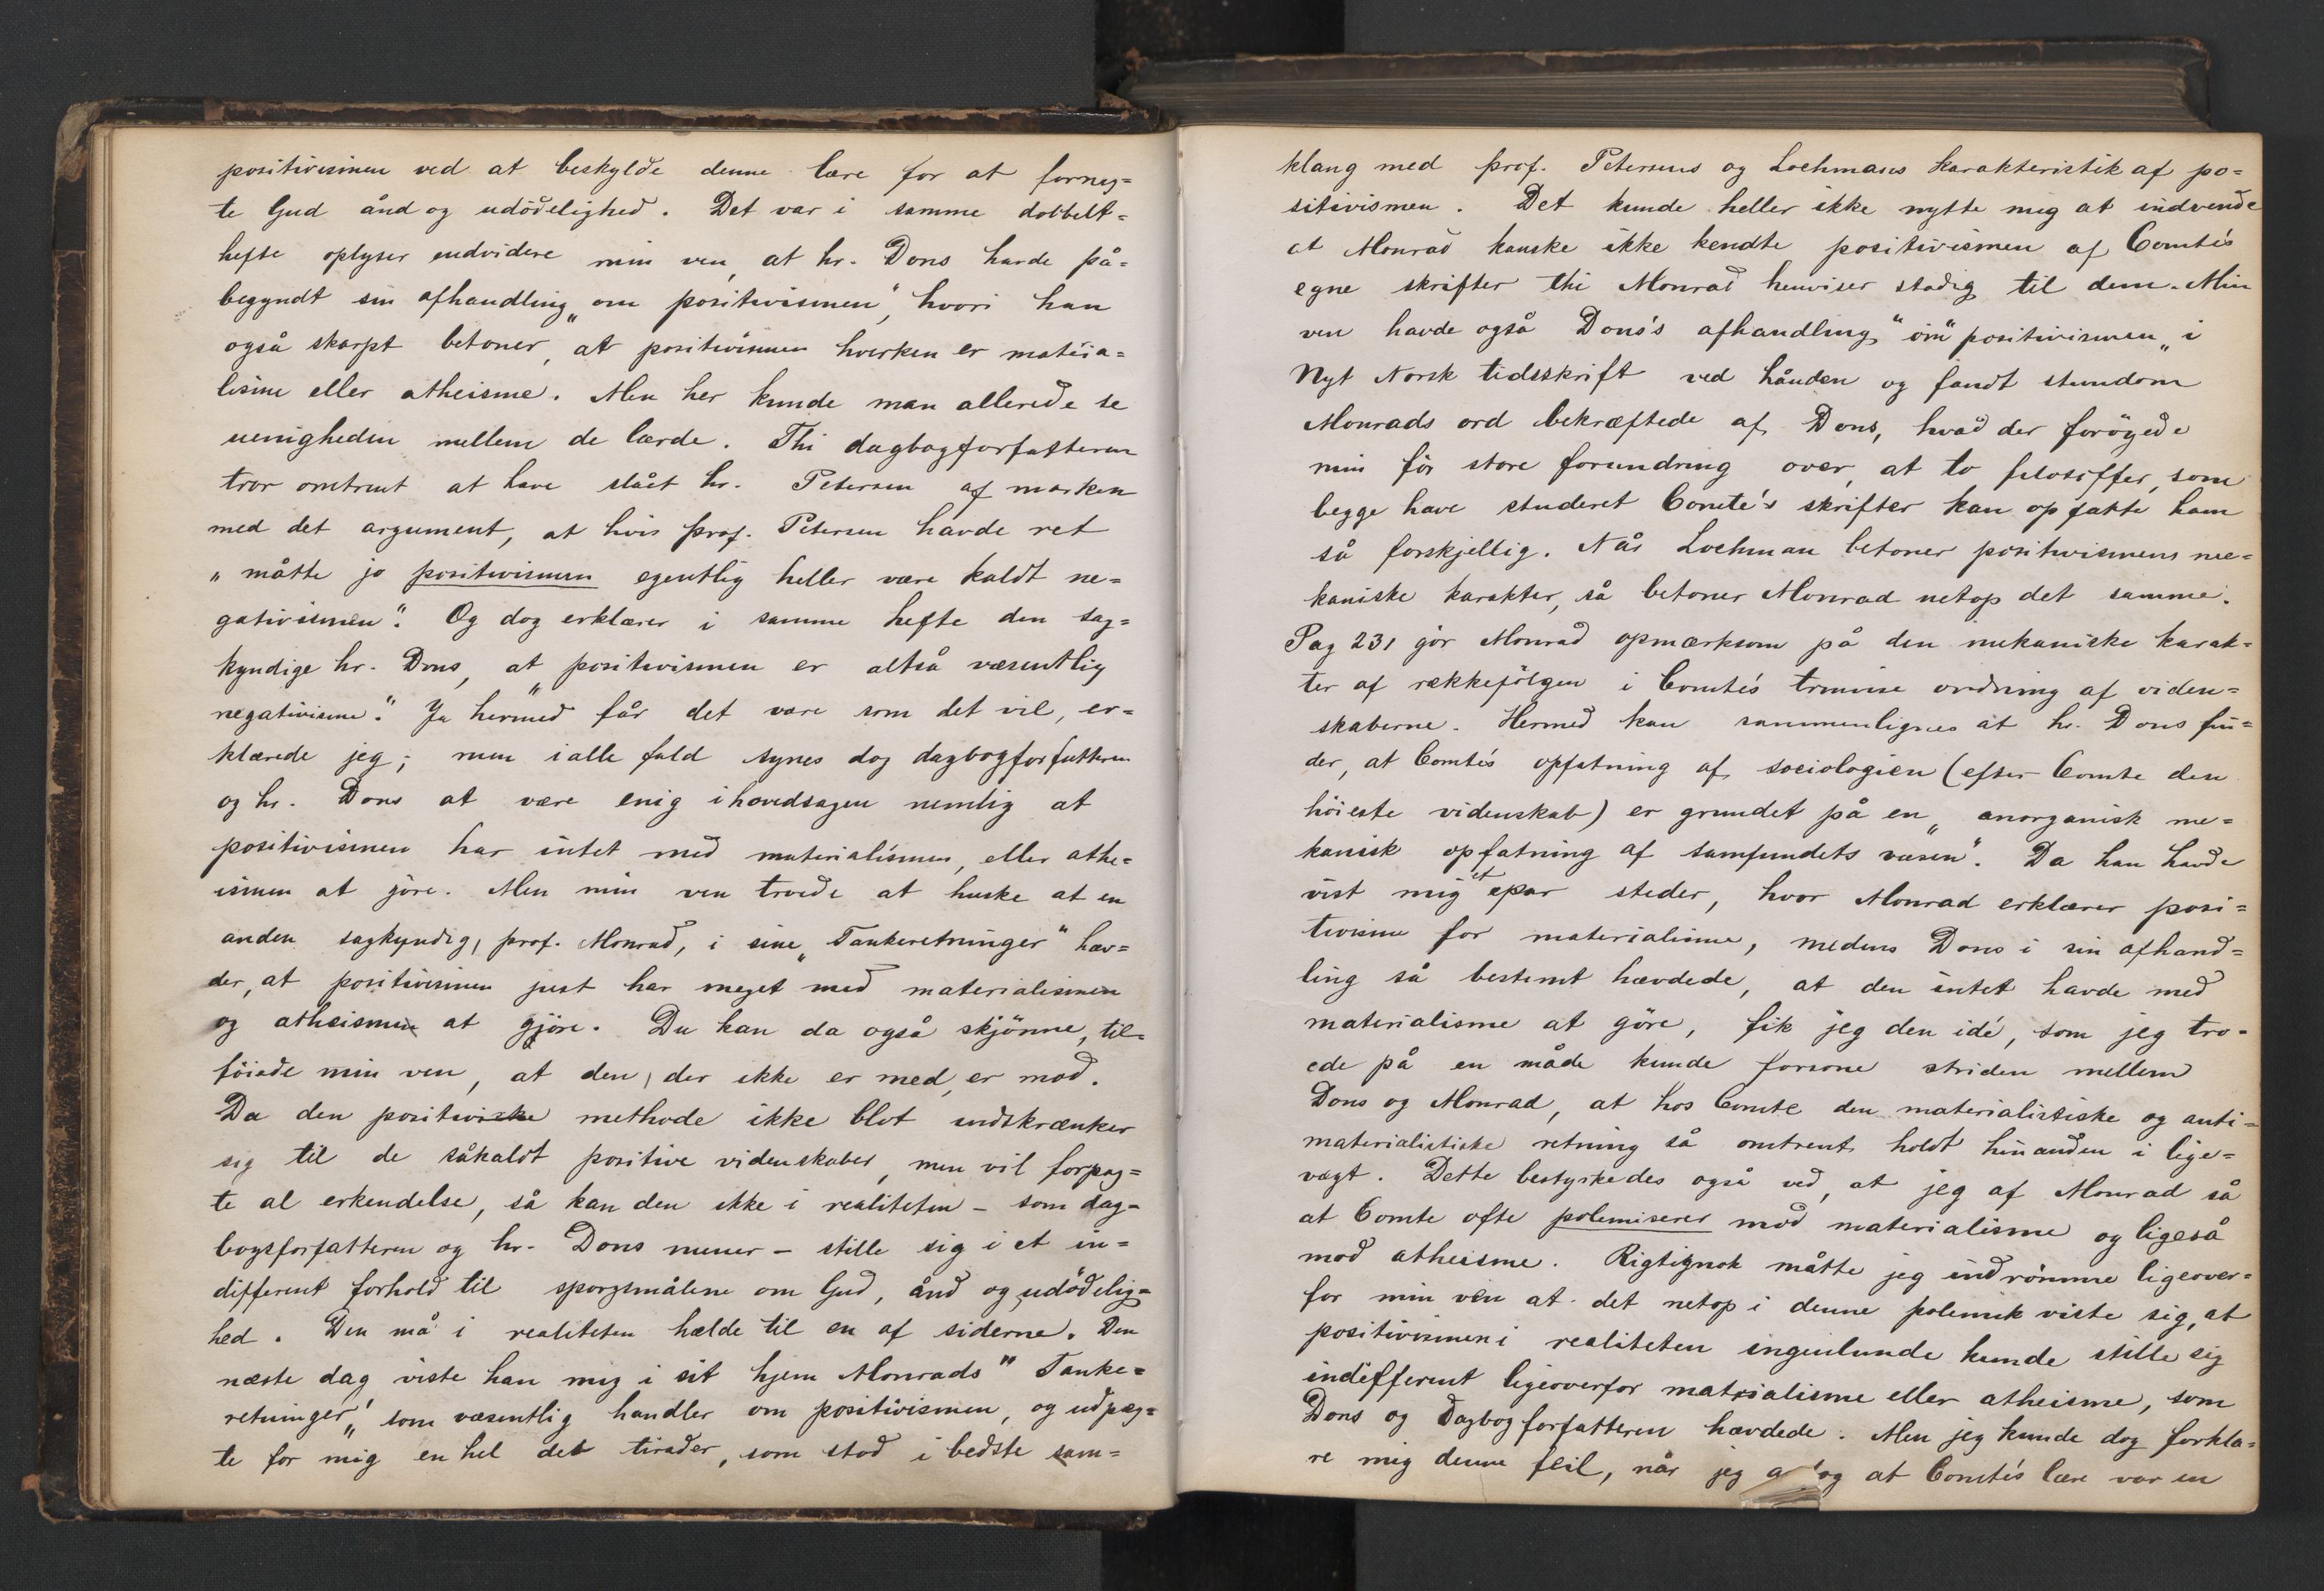 positivismen ved at beskylde denne lære for at forneg=
te Gud ånd og udödelighed. Det var i samme dobbelt=
hefte oplyser endvidere min ven, at hr. Dons havde på=
begyndt sin afhandling „om positivismen", hvori han
også skarpt betoner, at positivismen hverken er materia=
lisme eller atheisme. Men her kunde man allerede se
uenigheden mellem de lærde. Thi dagbogforfatteren
tror omtrent at have slået hr. Petersen af marken
med det argument, at hvis prof. Petersen havde ret
„måtte jo positivismen egentlig heller være kaldt ne=
gativismen". Og dog erklærer i samme hefte den sag=
kyndige hr. Dons, at „positivismen er altså væsentlig
negativisme". Ja hermed får det være som det vil, er=
klærede jeg; men i alle fald synes dog dagbogforfatteren
og hr. Dons at være enig i hovedsagen nemlig at
positivismen har intet med materialismen, eller athe=
ismen at göre. Men min ven troede at huske at en
anden sagkyndig, prof. Monrad, i sine „Tankeretninger" hæv=
der, at positivismen just har meget med materialismen
og atheismen at gjöre. Du kan da også skjönne, til=
föiede min ven, at den, der ikke er med, er mod.
Da den positiviske methode ikke blot indskrænker
sig til de såkaldt positive videnskaber, men vil forpag=
te al erkendelse, så kan den ikke i realiteten – som dag=
bogsforfatteren og hr. Dons mener – stille sig i et in=
different forhold til sporgsmålene om Gud, ånd og udödelig=
hed. Den må i realiteten hælde til en af siderne. Den
næste dag viste han mig i sit hjem Monrads" Tanke=
retninger„ som væsentlig handler om positivismen, og udpeg=
te for mig en hel del tirader, som stod i bedste sam=
klang med prof. Petersens og Lochmans karakteristik af po=
sitivismen. Det kunde heller ikke nytte mig at indvende
at Monrad kanske ikke kendte positivismen af Comte's
egne skrifter thi Monrad henviser stadig til dem. Min
ven havde også Dons's afhandling "om positivismen„ i
Nyt Norsk tidsskrift ved hånden og fandt stundom
Monrads ord bekræftede af Dons, hvad der forögede
min för store forundring over, at to filosoffer, som
begge have studeret Comte's skrifter kan opfatte ham
så forskjellig. Når Lochman betoner positivismens me=
kaniske karakter, så betoner Monrad netop det samme.
Pag 231 gör Monrad opmærksom på den mekaniske karak=
ter af rækkefölgen i Comte's trinvise ordning af viden=
skaberne. Hermed kan sammenlignes at hr. Dons fin=
der, at Comte's opfatning af sociologien (efter Comte den
höieste videnskab) er grundet på en „anorganisk me=
kanisk opfatning af samfundets væsen". Da han havde
vist mig et par steder, hvor Monrad erklærer posi=
tivisme for materialisme, medens Dons i sin afhand=
ling så bestemt hævdede, at den intet havde med
materialisme at göre, fik jeg den idé, som jeg tro=
ede på en måde kunde forsone striden mellem
Dons og Monrad, at hos Comte den materialistiske og anti=
materialistiske retning så omtrent holdt hinanden i lige=
vægt. Dette bestyrkedes også ved, at jeg af Monrad så
at Comte ofte polemiserer mod materialisme og ligeså
mod atheisme. Rigtignok måtte jeg indrömme ligeover=
for min ven at det netop i denne polemik viste sig, at
positivismen i realiteten ingenlunde kunde stille sig
indifferent ligeoverfor materialisme eller atheisme, som
Dons og Dagbogforfatteren hævdede. Men jeg kunde dog forkla=
re mig denne feil, når jeg at Comte's lære var en